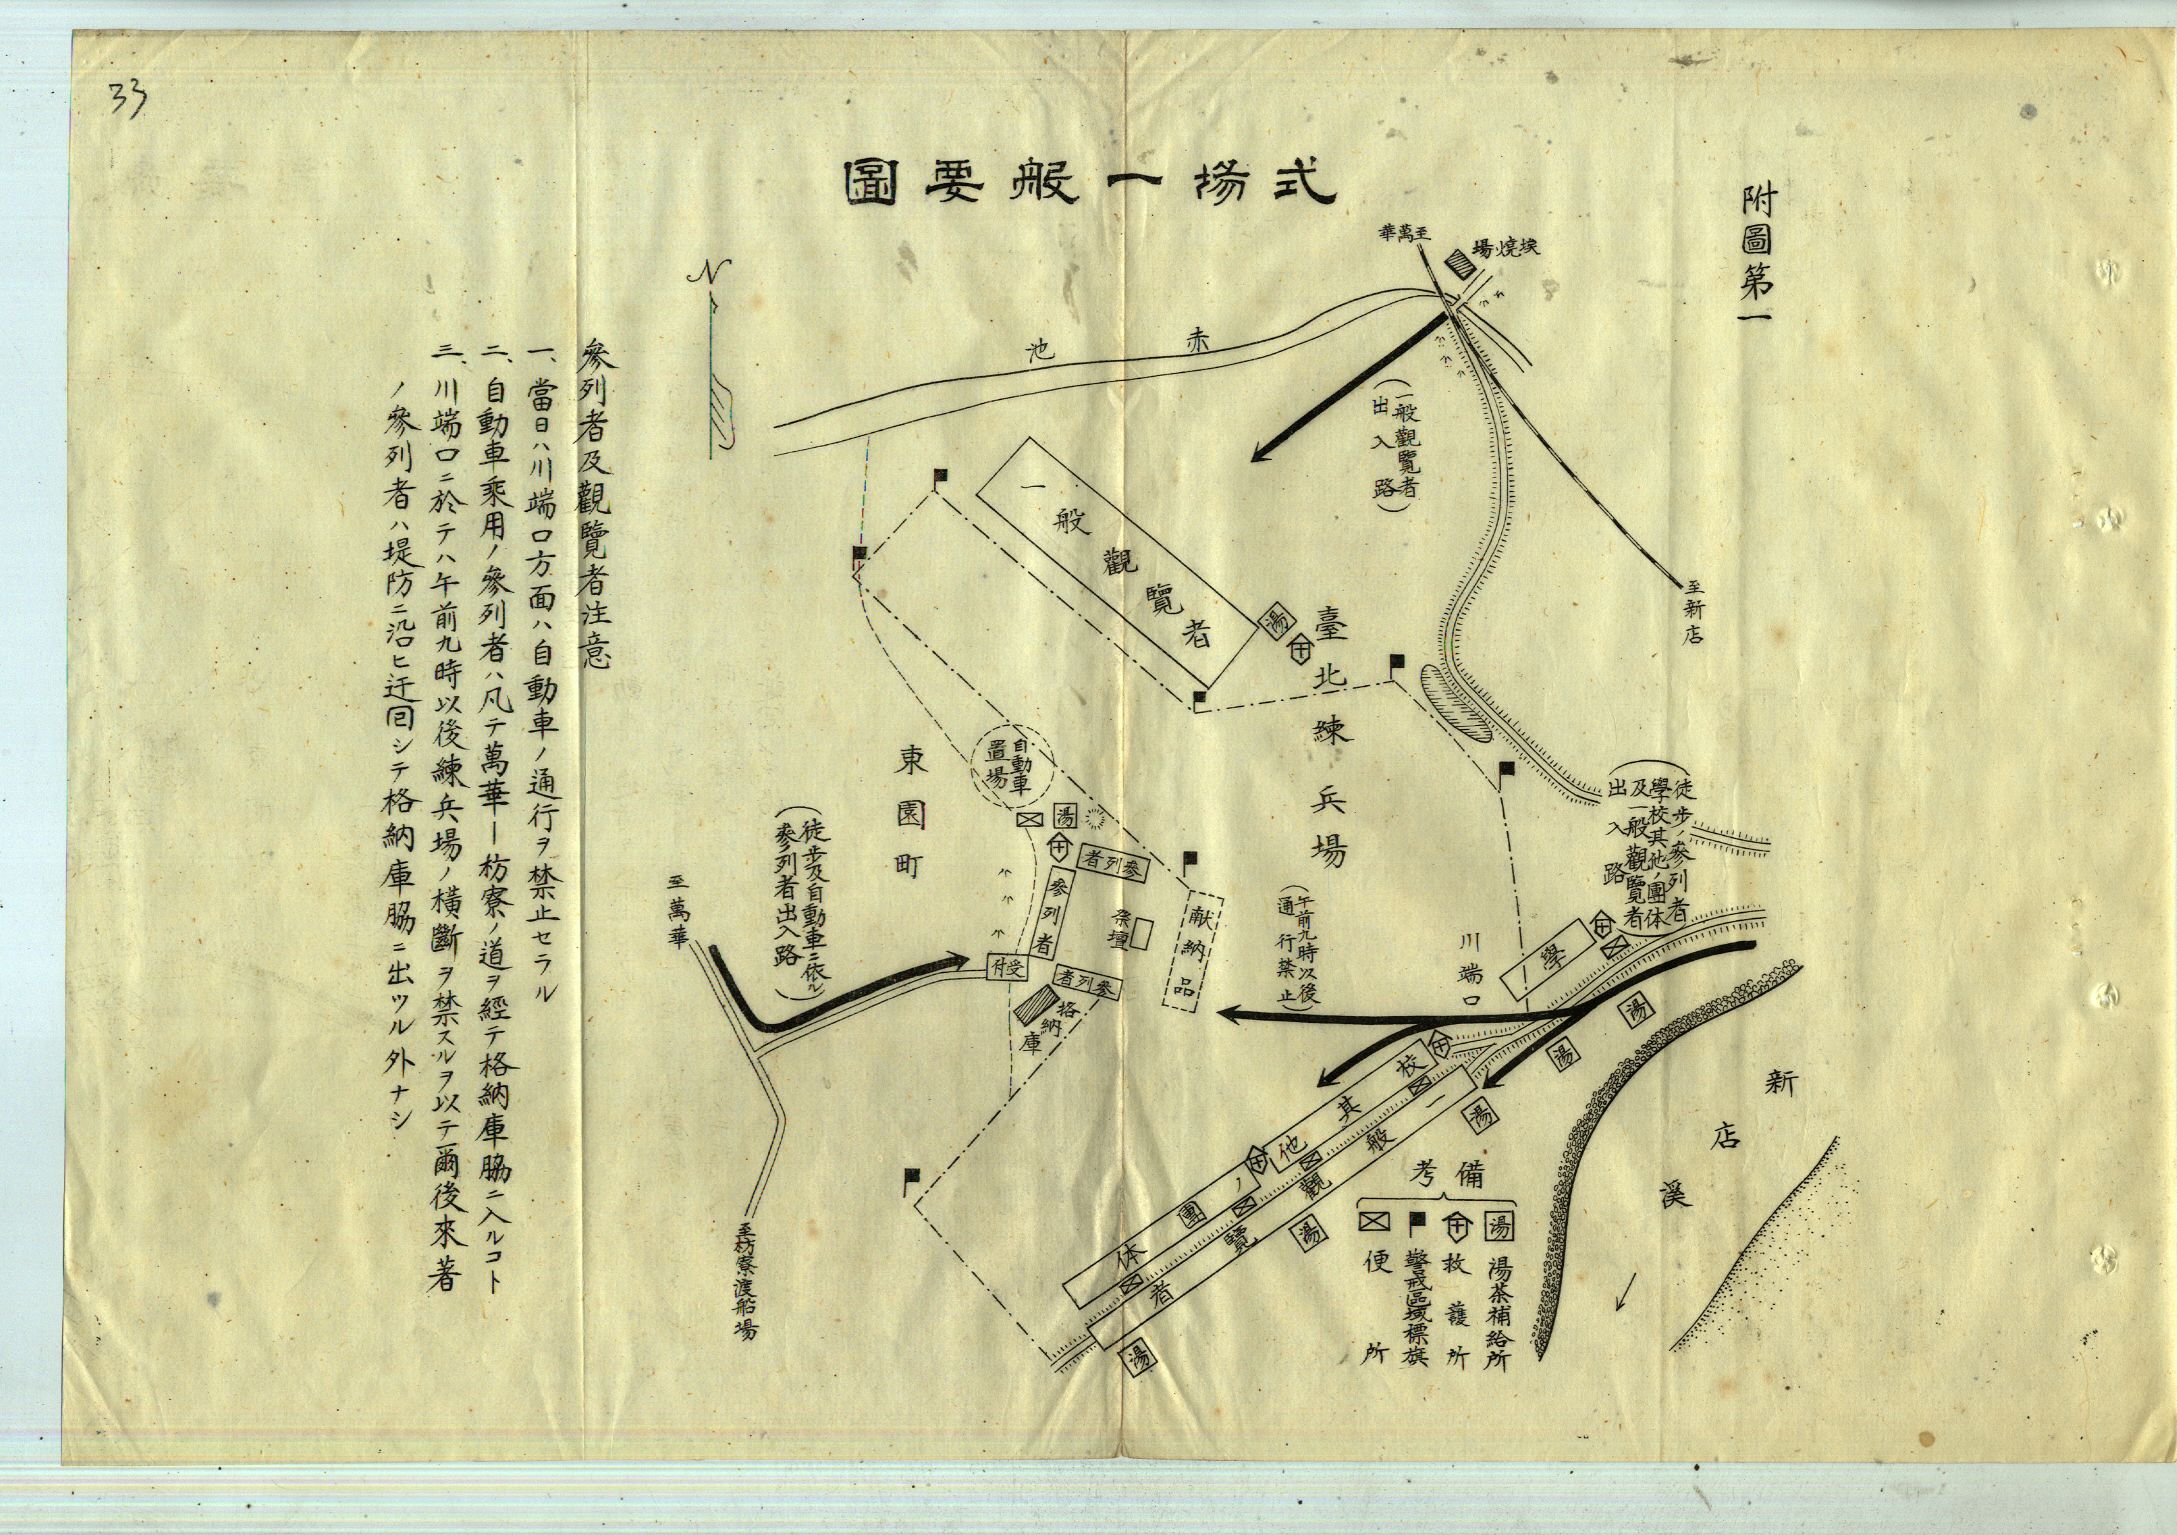 33
附圖第一
式場一般要圖
至萬華
埃燒場
赤池
（一般觀覽者
出入路）
至新店
一般觀覽者
湯
臺北練兵場
徒步ノ參列者
學校其他ノ團体
及一般觀覽者
出入路
自動車
置場
東園町
湯
參列者
參列者
參列者
祭壇
献納品
受付
格納庫
（徒步及自動車ニ依ル
參列者出入路）
至萬華
至枋寮渡船場
（午前九時以後
通行禁止）
川端口
學校其他ノ團体
一般觀覽者
湯
湯
湯
湯
湯
新店溪
備考
湯 湯茶補給所
救護所
警戒區域標旗
便所
N
參列者及觀覽者注意
一、當日ハ川端口方面ハ自動車ノ通行ヲ禁止セラル
二、自動車乘用ノ參列者ハ凡テ萬華ー枋寮ノ道ヲ經テ格納庫脇ニ入ルコト
三、川端口ニ於テハ午前九時以後練兵場ノ橫斷ヲ禁スルヲ以テ爾後來著
ノ參列者ハ堤防ニ沿ヒ迂回シテ格納庫脇ニ出ツル外ナシ